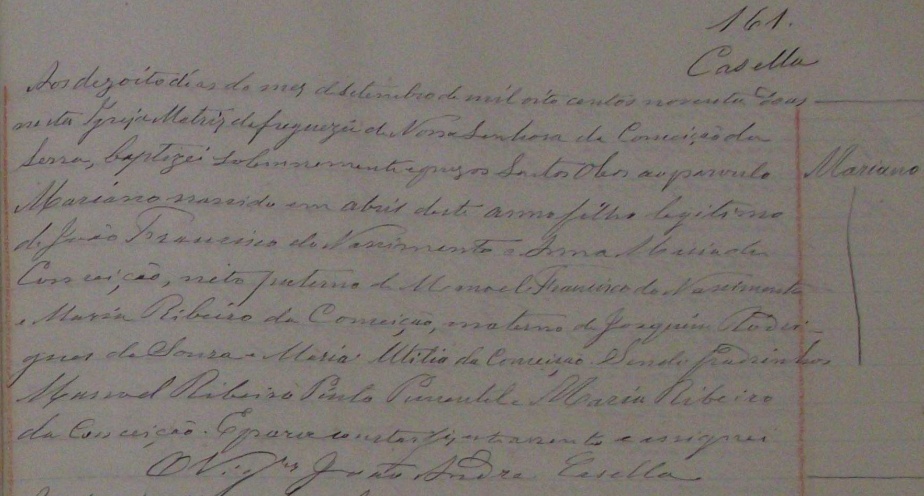 161.
Casella
Aos dezoito dias do mez de Setembro de mil oito centos noventa e
nesta Igreja Matriz da freguezia de Nossa Senhora da Conceição da
Serra, baptizei solemnemente e puz os Santos Oleos ao parvulo
Mariano
Mariano nascido em abril deste anno filho legitimo
de João Francisco do Nascimento e Anna Maria da
Conceição, neto paterno de Manoel Francisco do Nascimento
e Maria Ribeiro da Conceição, materno de Joaquim Rodri-
gues de Souza e Maria da Conceição. Sendo padrinhos
Manoel Ribeiro Pinto Pimentel e Maria Ribeiro
da Conceição. E para constar fiz este assento e assignei
O Vigr João Andre Casella